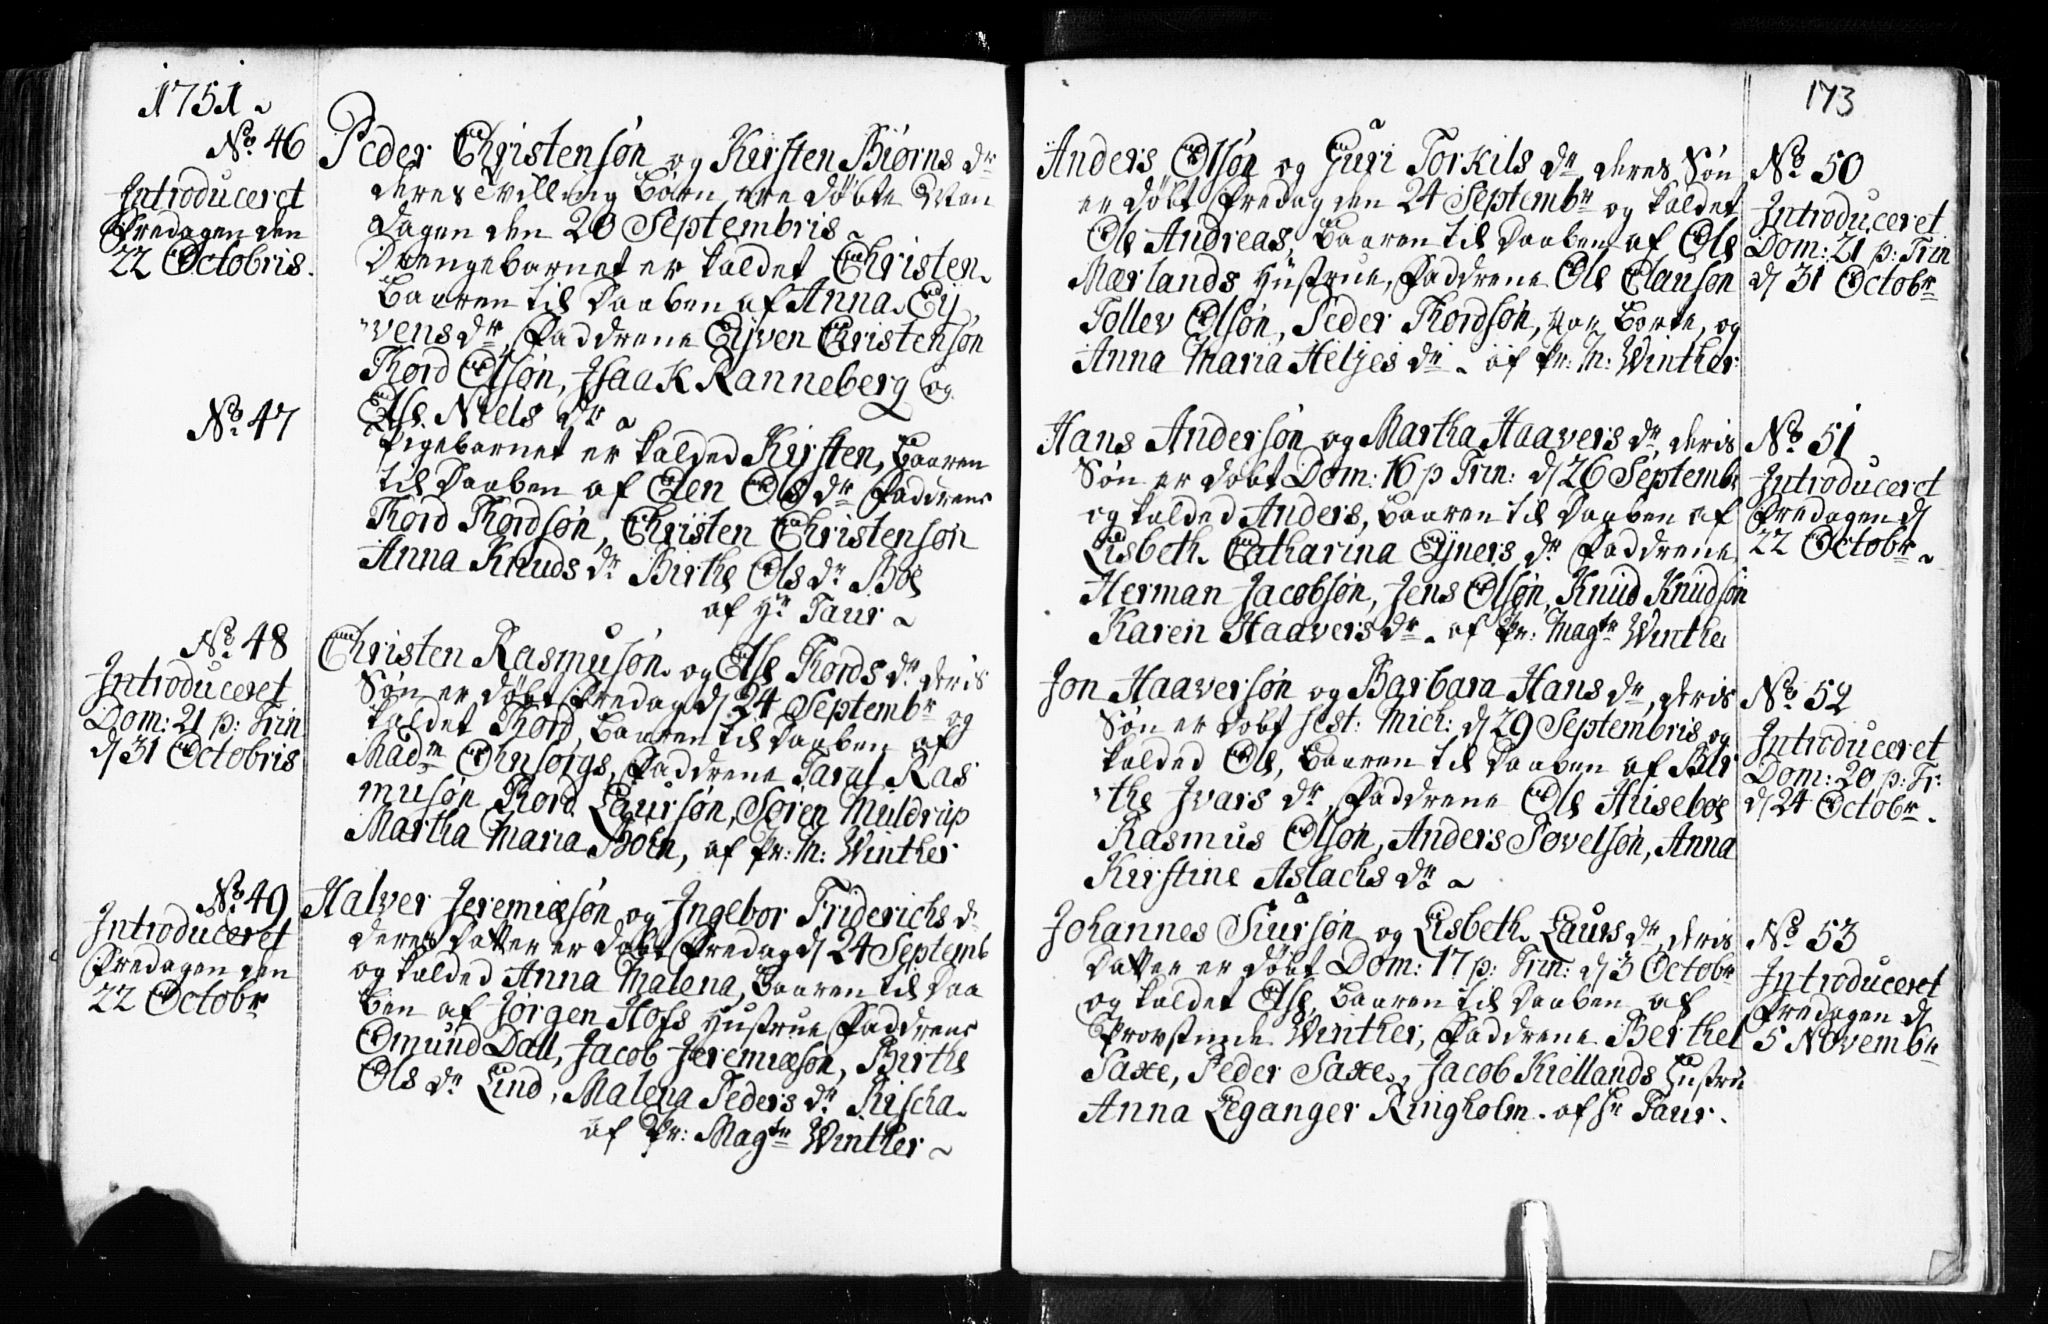 1751
No 46
Introduceret
Fredagen den
22 Octobris.
Peder Christensøn og Kirsten Biørns dr
deres Tvilling Børn ere døbte
dagen den 20 Septembris
Drengebarnet er kaldet Christen
Baaren til Daaben af Anna Eij
vens dr, Faddrene Eijven Christensøn
Thord Olsøn, Isaak Ranneberg og
Else Niels dr
No 47
Pigebarnet er kalded Kirsten, Baaren
til Daaben af Elen Ols dr Faddrene
Thord Thordsøn, Christen Christensøn
Anna Knuds dr Birthe Ols dr Bøe
af Hr Taur
No 48
Introduceret
Dom: 21 p: Trin
d 31 Octobris
Christen Rasmusøn og Else Thords dr deris
Søn er døbt Fredag d 24 Septembr og
kaldet Thord, Baaren til Daaben af
Madm Ohnsorgs, Faddrene Taral Ras
musøn Thord Laursøn, Søren Muldrup
Martha Maria Boen, af Pr: M: Winther
No 49
Introduceret
Fredagen den
22 Octobr
Halver Jeremiæsøn og Ingebor Friderichs d
deres Datter er døbt Fredag d 24 Septemb
og kalded Anna Malena, Baaren til Daa
ben af Jørgen Hofs Hustrue Faddrene
Omund Dall, Jacob Jeremiæsøn, Birthe
Ols dr Lind, Malena Peders dr Rischa
af Pr: Magtr Winther
173
Anders Olsøn og Guri Torkils dr, deres Søn
er døbt Fredag den 24 Septembr og kaldet
Ole Andreas, Baaren til Daaben af Ole
Mærlands Hustrue, Faddrene Ole Olansøn
Tollev Olsøn, Peder Thordsøn, Borte, og
Anna Maria Heljes dr af Pr: M: Winther
No 50
Introduceret
Dom: 21 p: Trin
d 31 Octobr
Hans Andersøn og Martha Haavers dr, deris
Søn er døbt Dom: 16 p Trin: d 26 Septembr
og kalded Anders, Baaren til Daaben af
Lisbeth Catharina Ejners dr Faddrene
Herman Jacobsøn, Jens Olsøn, Knud Knudsøn
Karen Haavers dr af Pr: Magtr Winther
No 51
Introduceret
Fredagen d
22 Octobr
Jon Haaversøn og Barbara Hans dr, deris
Søn er døbt fest: Mich: d 29 Septembris og
kalded Ole, Baaren til Daaben af Bir
the Ivars dr, Faddrene Ole Husebøe
Rasmus Olsøn, Anders Tovelsøn, Anna
Kirstine Aslachs dr
No 52
Introduceret
Dom: 20 p: Tr:
d 24 Octobr
Johannes Siursøn og Lisbeth Laurs dr, deris
Datter er døbt Dom: 17 p: Trin: d 3 Octobr
og kaldet Else, Baaren til Daaben af
Provstinde Winther, Faddrene Berthel
Saxe, Peder Saxe, Jacob Kiellands Hustru
Anna Leganger Ringholm af Hr Taur.
No 53
Introduceret
Fredagen d
5 Novembr